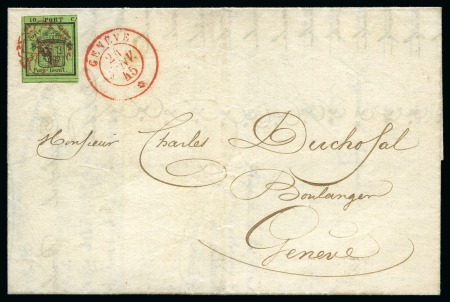 10 PORT C.
Port local
GENÈVE
24
45
Monsieur Charles Duchosal
Boulanger
Genève